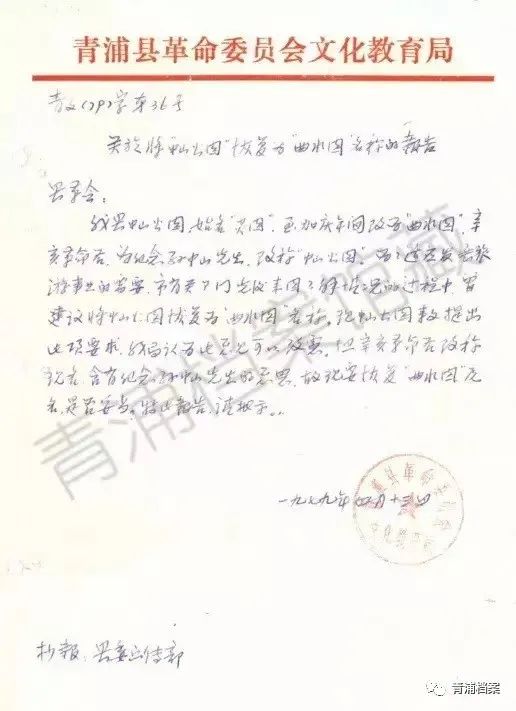 青浦县革命委员会文化教育局
青文(79)字第36号
关于将"中山公园"恢复为"曲水园"名称的报告
县革会:
我县中山公园,始名"灵园",至加庆年间改为"曲水园",辛
亥革命后,为纪念孙中山先生,改称"中山公园"。为了适应发展旅
游事业的需要,市有关部门在来园了解 过程中,曾
建议将中山公园恢复为"曲水园"名称。现中山公园 提出
此项要求,我局认为此意见可以改善,但辛亥革命后改称
现名,含有纪念孙中山先生的意思,故现要恢复"曲水园"原
名,是否妥当,特此报告,请批示。
一九七九年四月十三日
抄报:县委宣传部
青浦档案馆藏
青浦档案